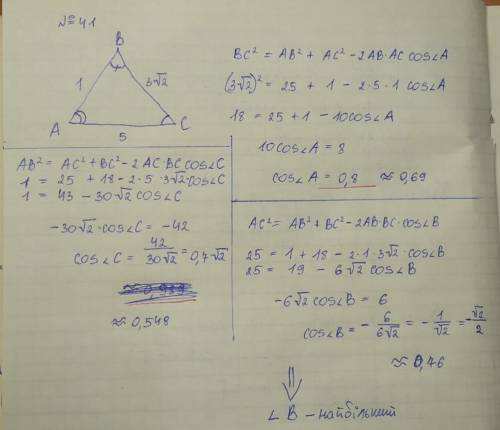 №41
B
1
3√2
A
5
C
BC² = AB² + AC² - 2AB·AC cos∠A
(3√2)² = 25 + 1 - 2·5·1 cos∠A
18 = 25 + 1 - 10cos∠A
10cos∠A = 8
cos∠A = 0,8 ≈ 0,69
AB² = AC² + BC² - 2AC·BC cos∠C
1 = 25 + 18 - 2·5·3√2 cos∠C
1 = 43 - 30√2 cos∠C
-30√2·cos∠C = -42
cos∠C = 42/30√2 = 0,7√2
≈ 0,548
AC² = AB² + BC² - 2AB·BC·cos∠B
25 = 1 + 18 - 2·1·3√2·cos∠B
25 = 19 - 6√2 cos∠B
-6√2 cos∠B = 6
cos∠B = - 6/6√2 = - 1/√2 = -√2/2
≈ 0,76
∠B - найбільший